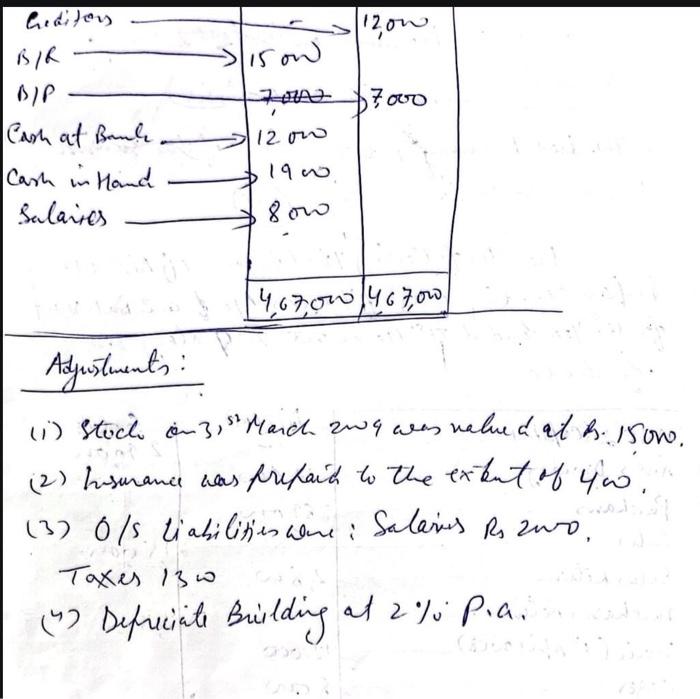 Creditors - 12,000
B/R 15000
B/P 7,000 7000
Cash at Bank 12000
Cash in Hand 1900
Salaries 8000
4,67,000 4,67,000
Adjustments:
(1) Stock on 31st March 2009 was valued at Rs. 15000.
(2) Insurance was prepaid to the extent of 400.
(3) O/S Liabilities were: Salaries Rs 2000,
Taxes 1300
(4) Depreciate Building at 2% P.a.